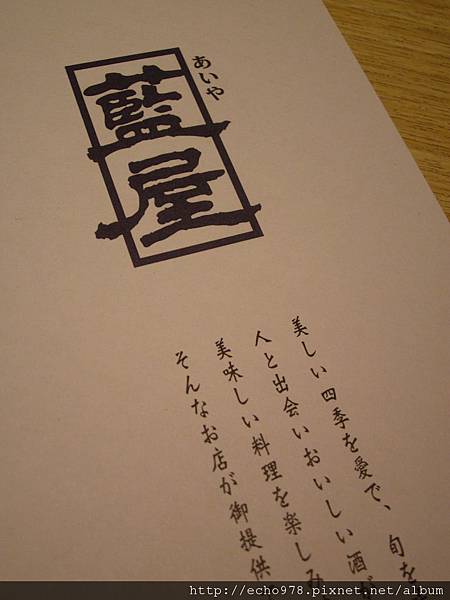 藍屋
あいや
美しい四季を愛で、旬を
人と出会いおいしい酒が
美味しい料理を楽しみ
そんなお店が御提供
http://echo978.pixnet.net/album